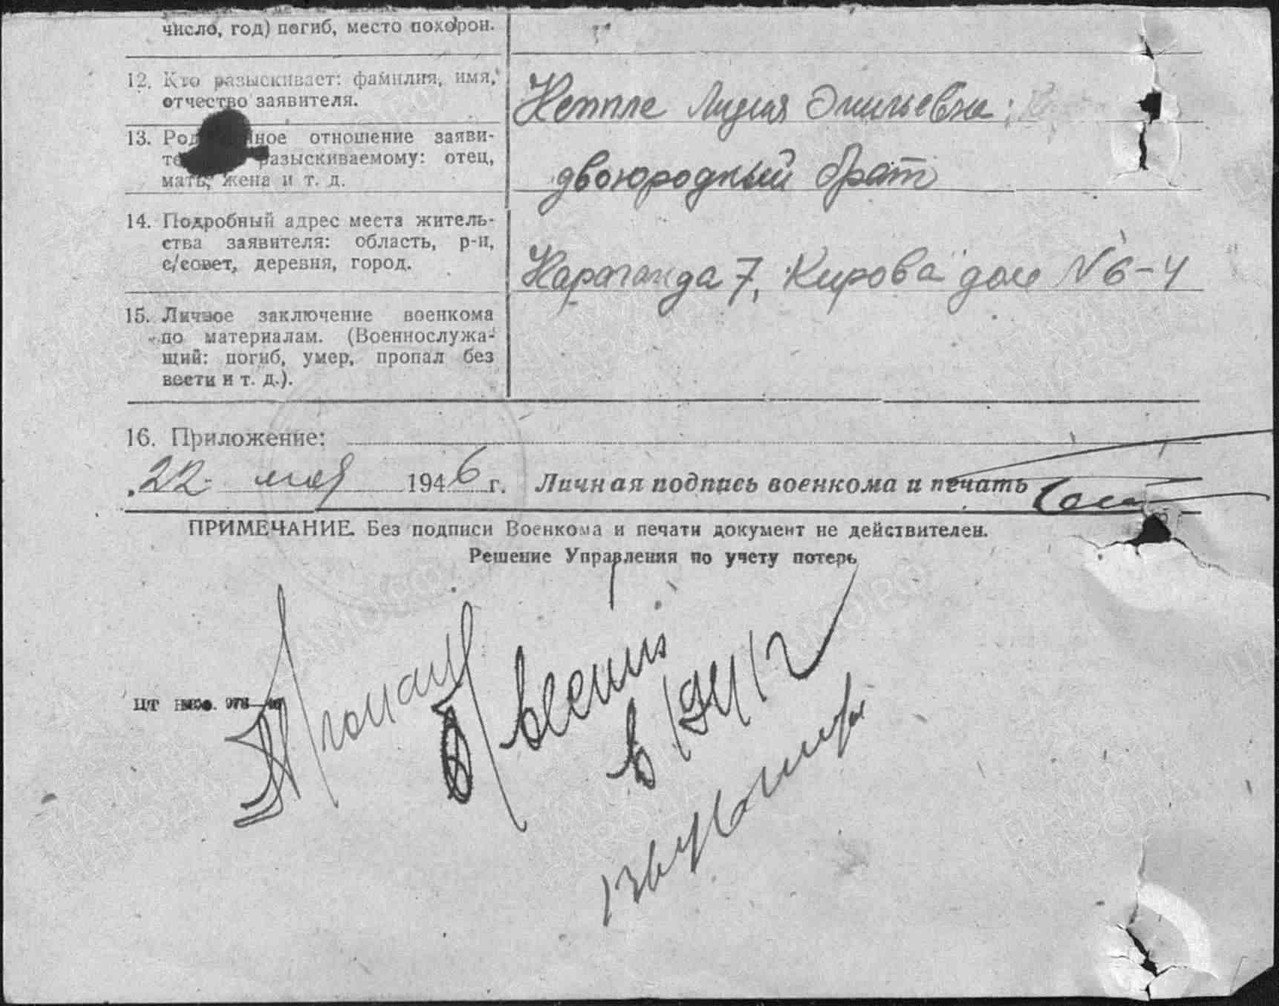 число, год) погиб, место похорон.
12. Кто разыскивает: фамилия, имя,
отчество заявителя.
Кеппле Лидия Эмильевна
13. Род нное отношение заяви-
те разыскиваемому: отец,
мать, жена и т. д.
двоюродный брат
14. Подробный адрес места житель-
ства заявителя: область, р-н,
с/совет, деревня, город.
Караганда 7, Кирова дом N 6-4
15. Личное заключение военкома
по материалам. (Военнослужа-
щий: погиб, умер, пропал без
вести и т. д.).
16. Приложение:
22 мая 1946 г. Личная подпись военкома и печать
ПРИМЕЧАНИЕ. Без подписи Военкома и печати документ не действителен.
Решение Управления по учету потерь
Пропал
б/вести
в